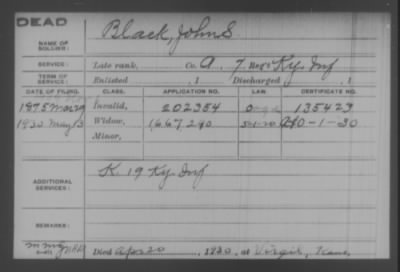 DEAD
NAME OF SOLDIER: Black, John S
SERVICE: Late rank, Co. A. 7 Reg't Ky. Inf
TERM OF SERVICE: Enlisted , 1 Discharged , 1
DATE OF FILING. CLASS. APPLICATION NO. LAW. CERTIFICATE NO.
1875 Invalid, 202354 135423
1930 May 13 Widow, 1667290 5-1-20 0-1-30
Minor,
ADDITIONAL SERVICES: K 19 Ky Inf
REMARKS:
Died Apr 20, 1930, at Virgil, Kans,